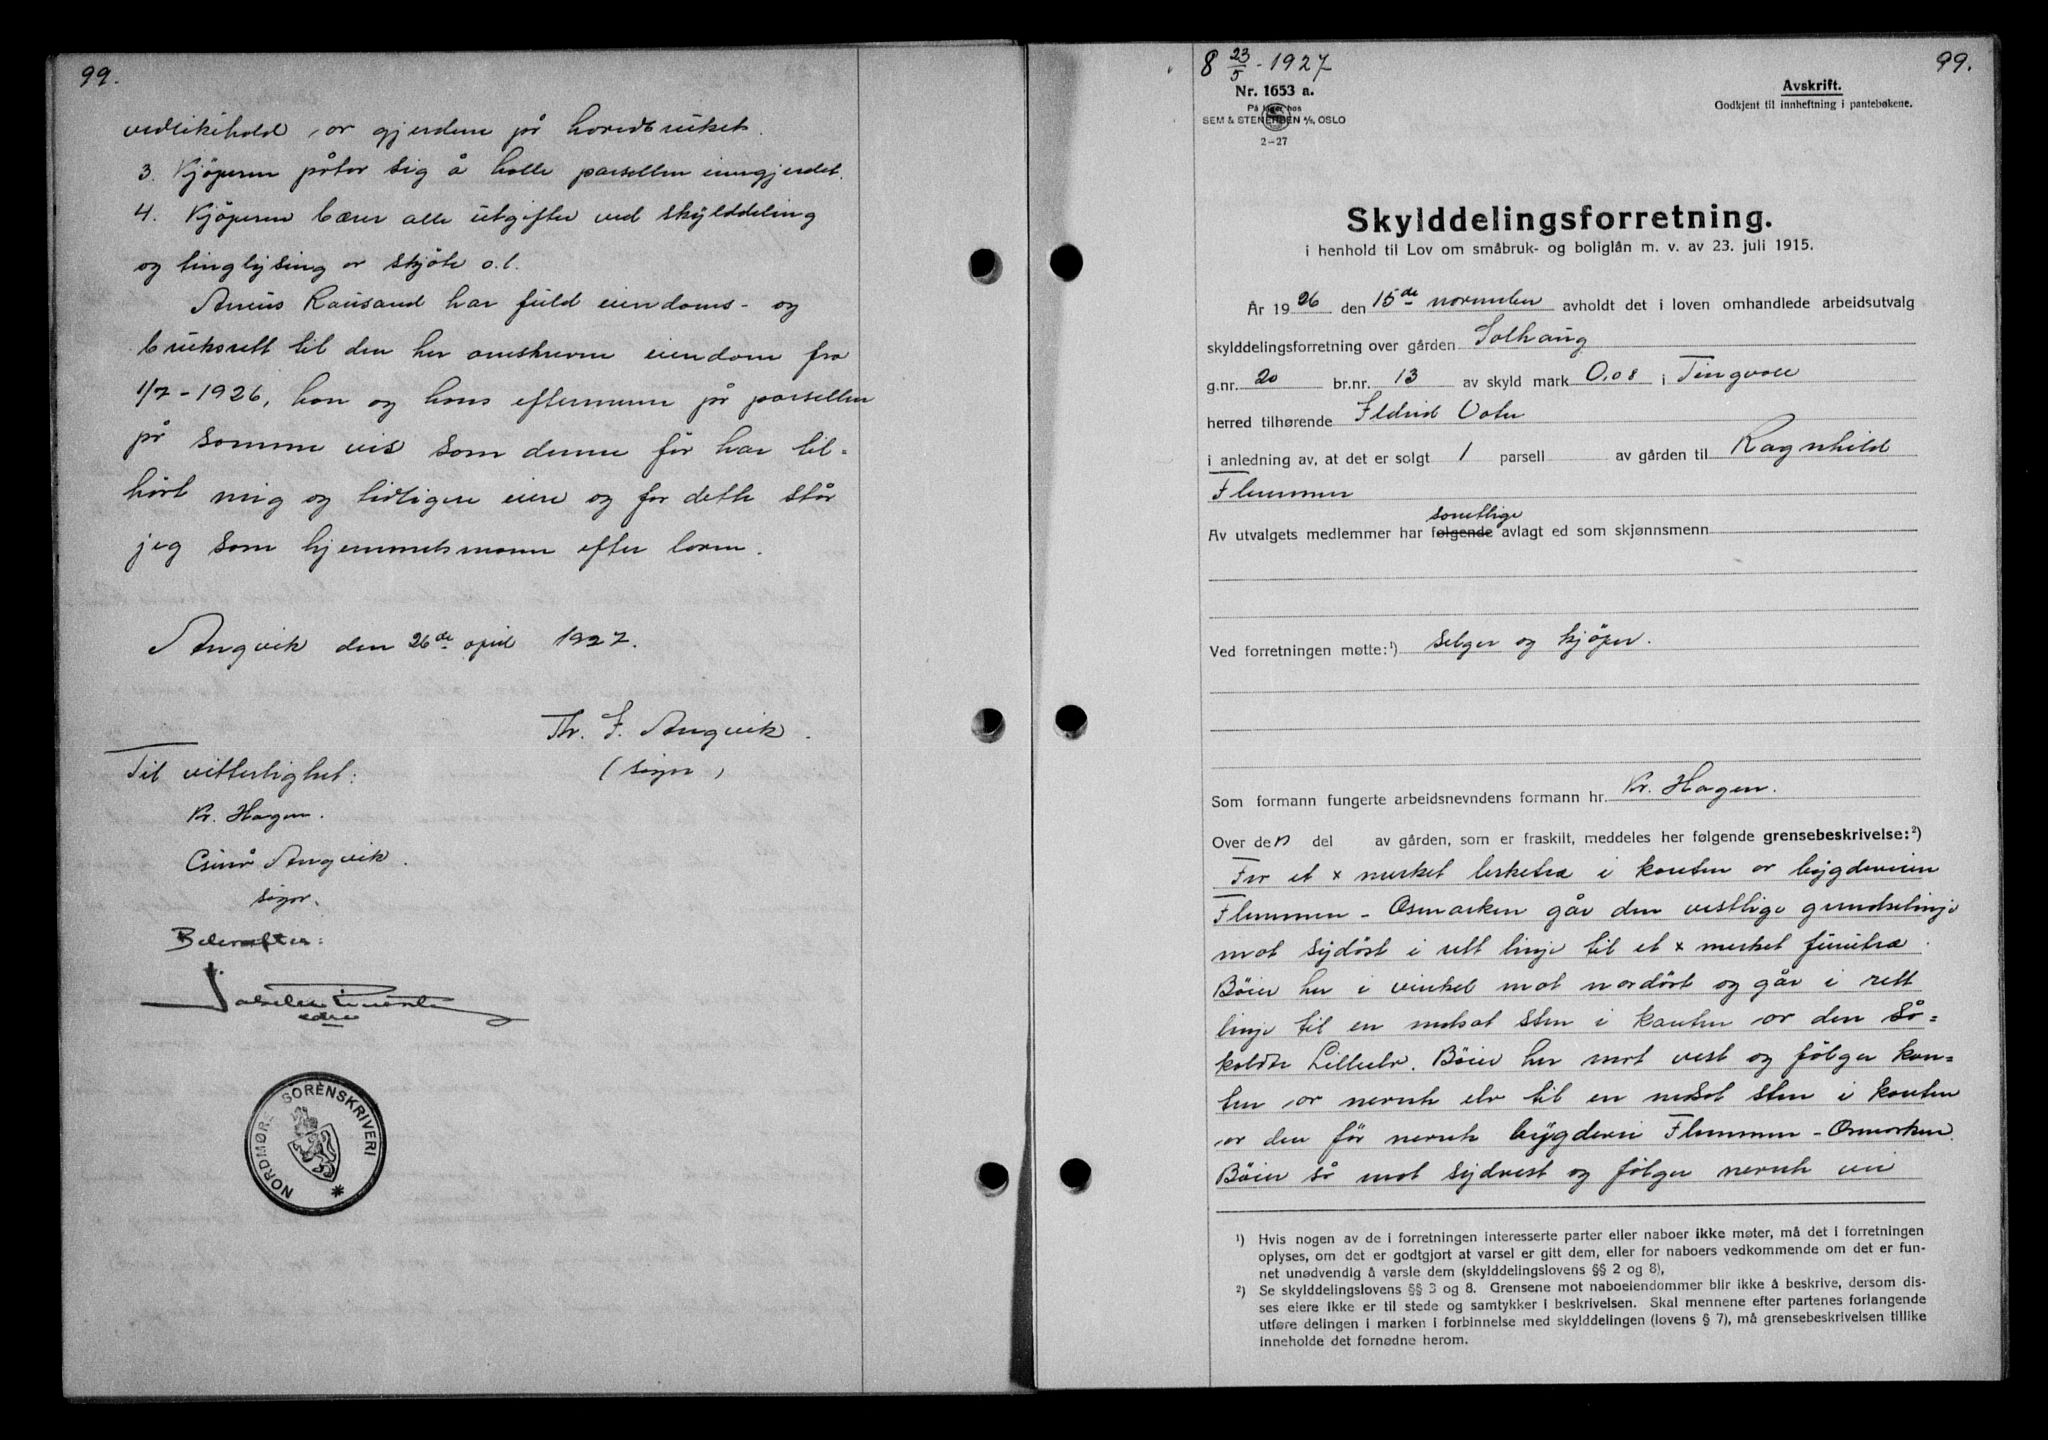 99.
vedlikehold av gjerdene på hovedbruket.
3. Kjøperen påtar sig å holle parsellen inngjerdet.
4. Kjøperen bærer alle utgifter ved skylddeling
og tinglysing av skjøte o.l.
Anius Rausand har fuld eiendoms- og
bruksrett til den her omskrevne eiendom fra
1/7-1926, han og hans eftermenn på parsellen
på samme vis som denne før har til=
hørt mig og tidligere eiere og for dette står
jeg som hjemmelsmann efter loven.
Angvik den 26de april 1927.
Th. F. Angvik.
(sign)
Til vitterlighet:
Kr. Hagen.
Angvik.
sign.
Bekreftes:
NORDMØRE SORENSKRIVERI
8 23/5-1927
99.
Nr. 1653 a.
På lager hos
SEM & STENERSEN A/S, OSLO
2-27
Avskrift.
Godkjent til innheftning i pantebøkene.
Skylddelingsforretning.
i henhold til Lov om småbruk- og boliglån m. v. av 23. juli 1915.
År 1926 den 15de november avholdt det i loven omhandlede arbeidsutvalg
skylddelingsforretning over gården Solhaug
g.nr. 20 br.nr. 13 av skyld mark 0,08 i Tingvoll
herred tilhørende Eldrid
i anledning av, at det er solgt 1 parsell av gården til Ragnhild
Flemmen
samtlige
Av utvalgets medlemmer har følgende avlagt ed som skjønnsmenn
Ved forretningen møtte:¹) selger og kjøper.
Som formann fungerte arbeidsnevndens formann hr. Kr. Hagen.
Over den del av gården, som er fraskilt, meddeles her følgende grensebeskrivelse:²)
Fra et x merket bjerketræ i kanten av bygdeveien
Flemmen - Osmarken går den vestlige grundselinje
mot sydøst i rett linje til et x merket furutræ.
Bøier her i vinkel mot nordøst og går i rett
linje til en nedsat sten i kanten av den så=
kaldte Lilleelv. Bøier her mot vest og følger kan=
ten av nevnte elv til en nedsat sten i kanten
av den før nevnte bygdevei Flemmen - Osmarken.
Bøier så mot sydvest og følger nevnte vei
¹) Hvis nogen av de i forretningen interesserte parter eller naboer ikke møter, må det i forretningen
oplyses, om det er godtgjort at varsel er gitt dem, eller for naboers vedkommende om det er fun-
net unødvendig å varsle dem (skylddelingslovens §§ 2 og 8),
²) Se skylddelingslovens §§ 3 og 8. Grensene mot naboeiendommer blir ikke å beskrive, dersom dis-
ses eiere ikke er til stede og samtykker i beskrivelsen. Skal mennene efter partenes forlangende
utføre delingen i marken i forbinnelse med skylddelingen (lovens § 7), må grensebeskrivelsen tillike
inneholde det fornødne herom.